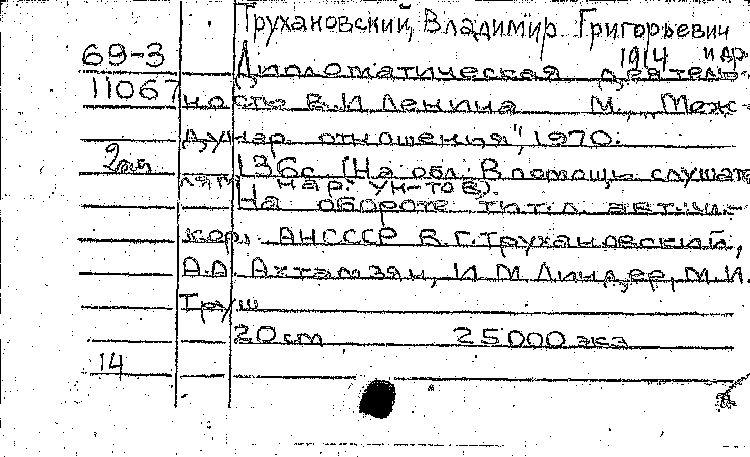 Трухановский, Владимир Григорьевич
69-3 1914 и др.
Дипломатическая деятель-
11067 ность В.И Ленина М., "Меж-
дунар. отношения", 1970.
136с. (На обл: В помощь слушате
лям нар. ун-тов).
На обороте тит.л. авт: чл-
кор. АНСССР В.Г.Трухановский,
А.А. Ахтамзян, И.М Линдер, М.И.
Труш
20 cm 25000 экз
14